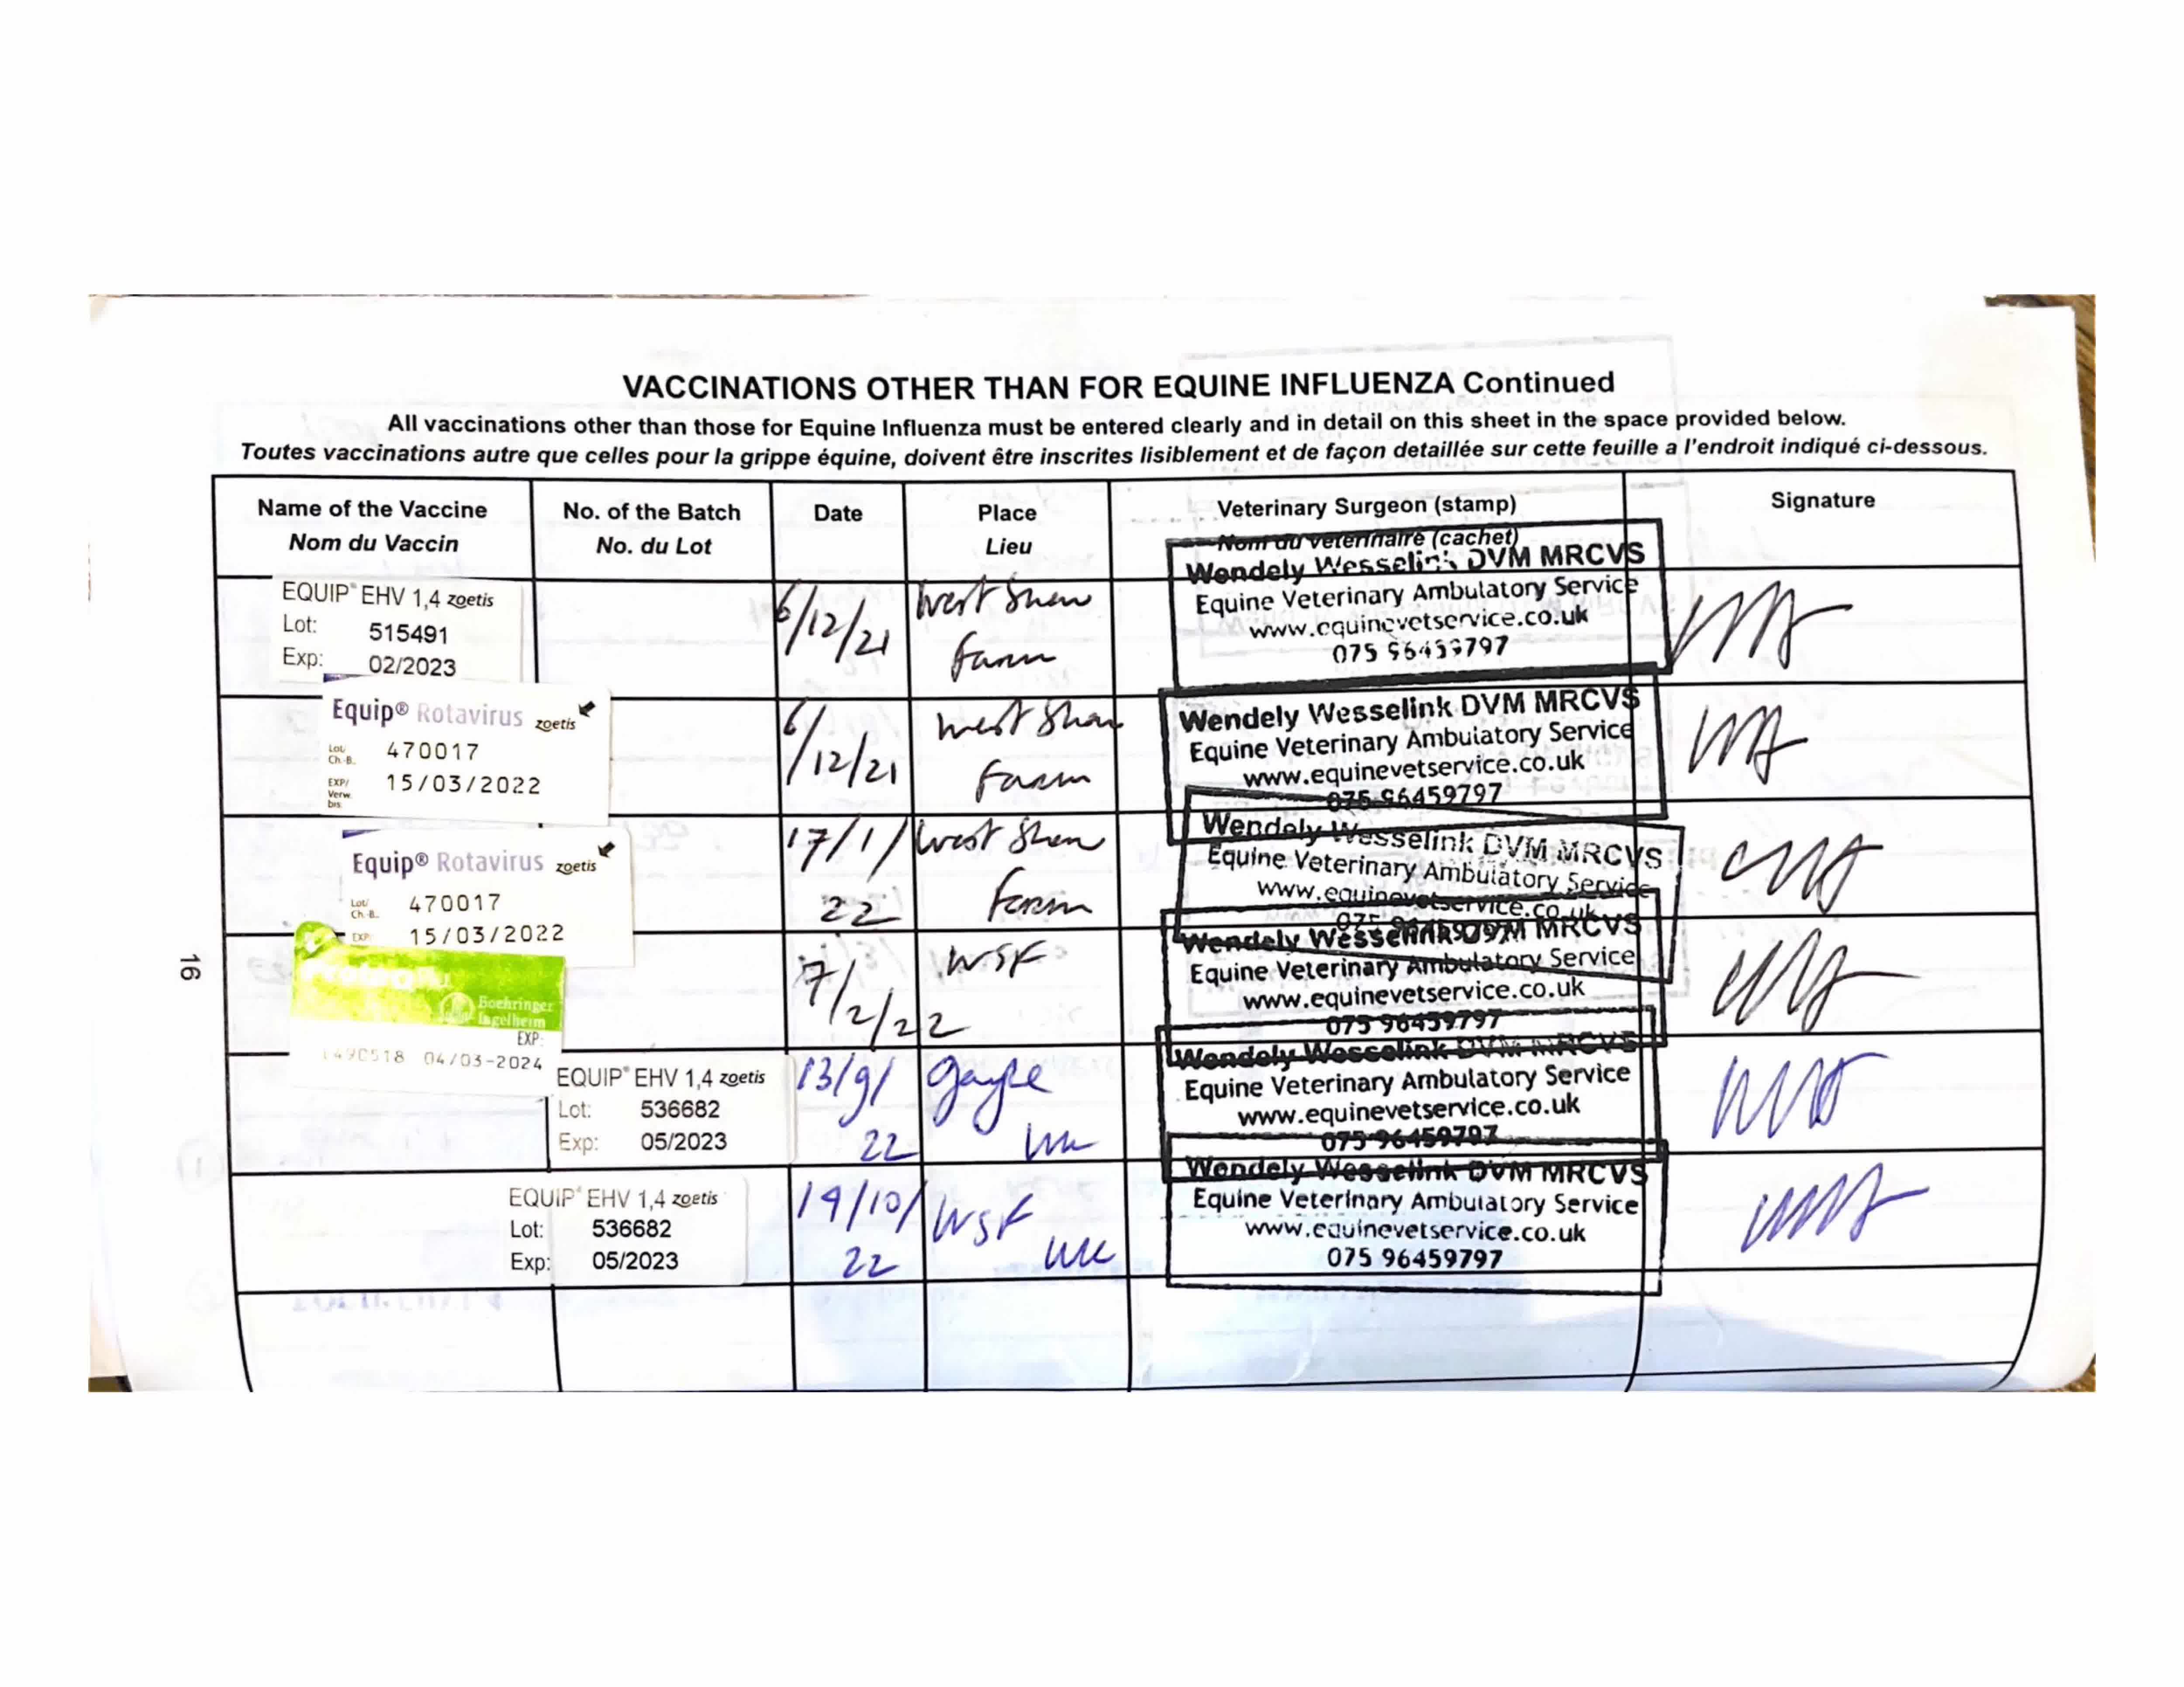 VACCINATIONS OTHER THAN FOR EQUINE INFLUENZA Continued
All vaccinations other than those for Equine Influenza must be entered clearly and in detail on this sheet in the space provided below.
Toutes vaccinations autre que celles pour la grippe équine, doivent être inscrites lisiblement et de façon detaillée sur cette feuille a l'endroit indiqué ci-dessous.
Name of the Vaccine
Nom du Vaccin
No. of the Batch
No. du Lot
Date
Place
Lieu
Veterinary Surgeon (stamp)
Nom du veterinaire (cachet)
Signature
EQUIP® EHV 1,4 zoetis
Lot: 515491
Exp: 02/2023
6/12/21
West Shaw
Farm
Wendely Wesselink DVM MRCVS
Equine Veterinary Ambulatory Service
www.equinevetservice.co.uk
075 96459797
Equip® Rotavirus zoetis
Lot/
Ch.-B. 470017
EXP/
Verw.
bis: 15/03/2022
6/12/21
West Shaw
Farm
Wendely Wesselink DVM MRCVS
Equine Veterinary Ambulatory Service
www.equinevetservice.co.uk
075 96459797
Equip® Rotavirus zoetis
Lot/
Ch.-B. 470017
EXP: 15/03/2022
17/1/
22
West Shaw
Farm
Wendely Wesselink DVM MRCVS
Equine Veterinary Ambulatory Service
www.equinevetservice.co.uk
075 96459797
Boehringer
Ingelheim
EXP:
04/03-2024
7/2/22
WSF
Wendely Wesselink DVM MRCVS
Equine Veterinary Ambulatory Service
www.equinevetservice.co.uk
075 96459797
EQUIP® EHV 1,4 zoetis
Lot: 536682
Exp: 05/2023
13/9/
22
UK
Wendely Wesselink DVM MRCVS
Equine Veterinary Ambulatory Service
www.equinevetservice.co.uk
075 96459797
EQUIP® EHV 1,4 zoetis
Lot: 536682
Exp: 05/2023
19/10/
22
WSF
UK
Wendely Wesselink DVM MRCVS
Equine Veterinary Ambulatory Service
www.equinevetservice.co.uk
075 96459797
16